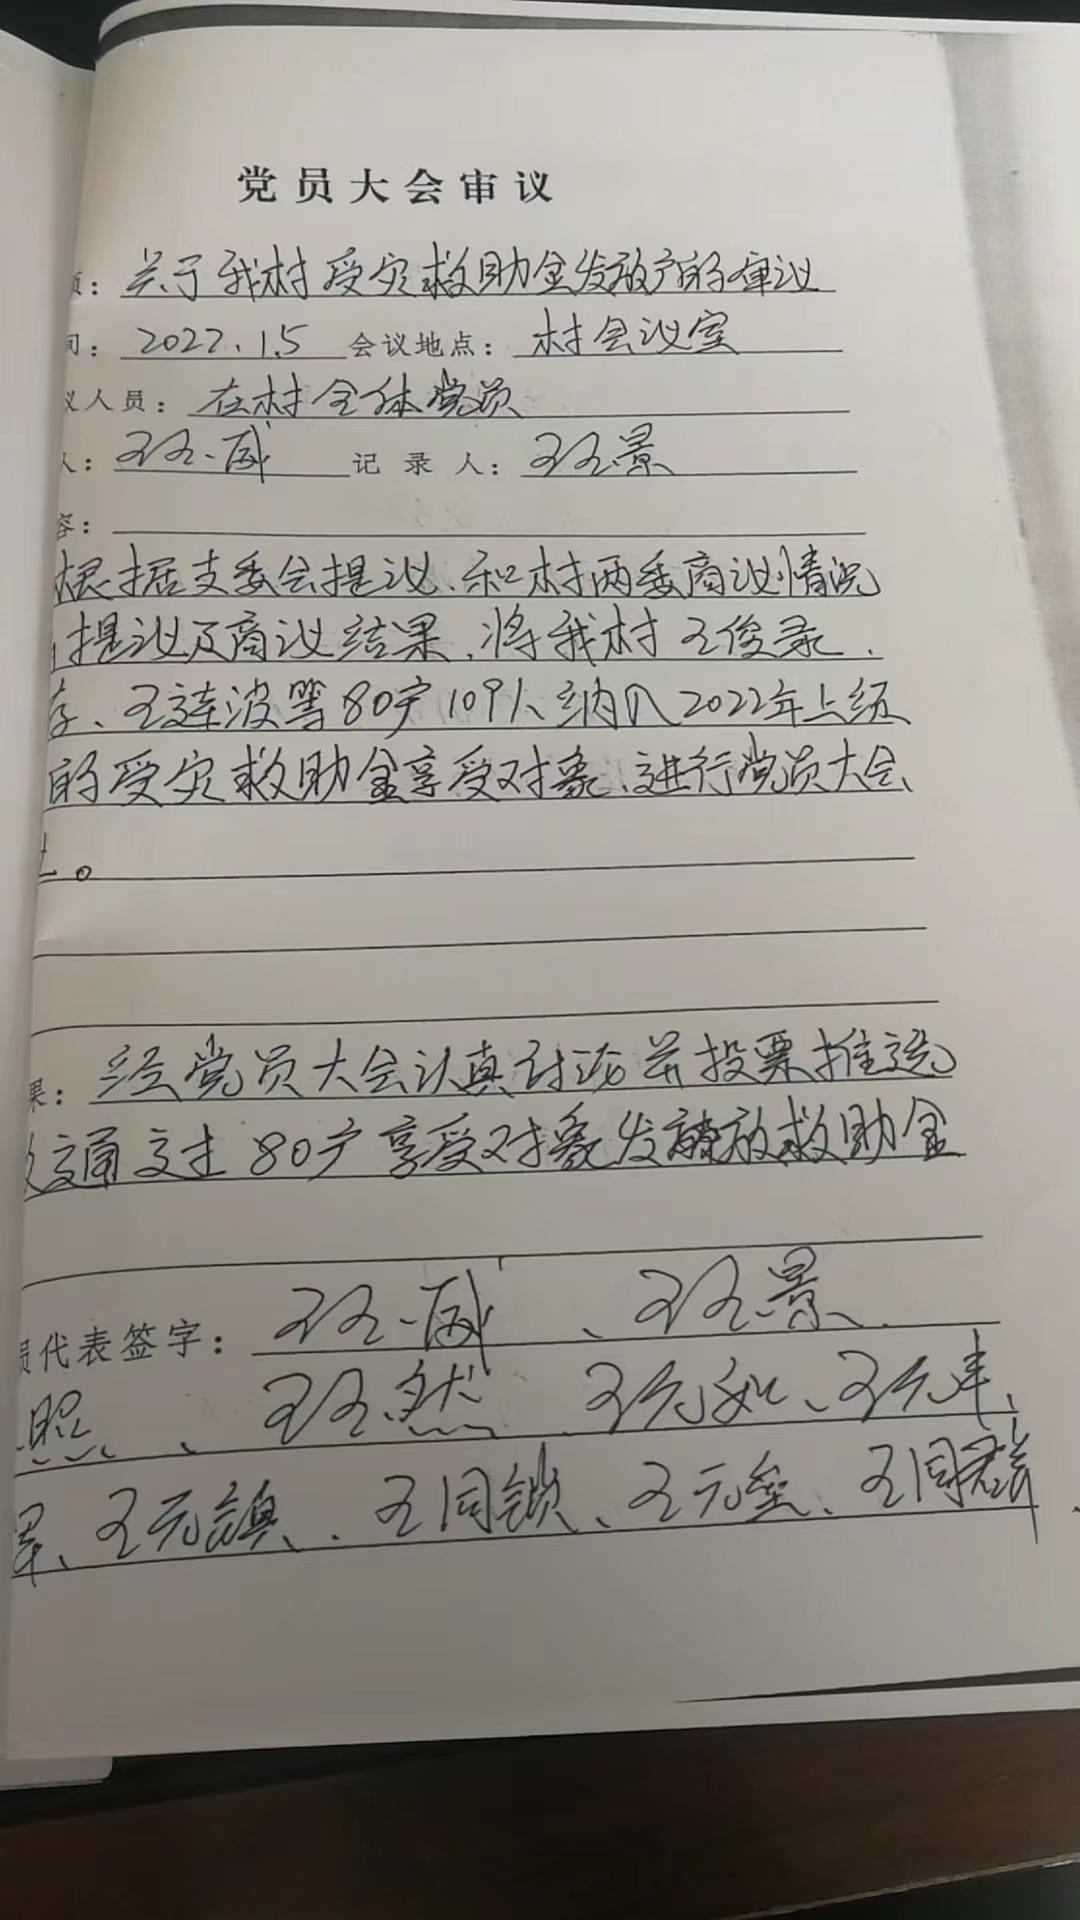 党员大会审议
：关于我村受灾救助金发放户的审议
间：2022.1.5 会议地点：村会议室
议人员：在村全体党员
人：王玉威 记录人：王玉景
容：
根据支委会提议、和村两委商议情况
提议及商议结果，将我村王俊录、
存、王连波等80户109人纳入2022年上级
的受灾救助金享受对象、进行党员大会、
。
果：经党员大会认真讨论并投票推选
通过 80户享受对象发放救助金
员代表签字：王玉威、王玉景、
照、王玉然、王元如、王元丰、
王元、王同锁、王元垒、王同群